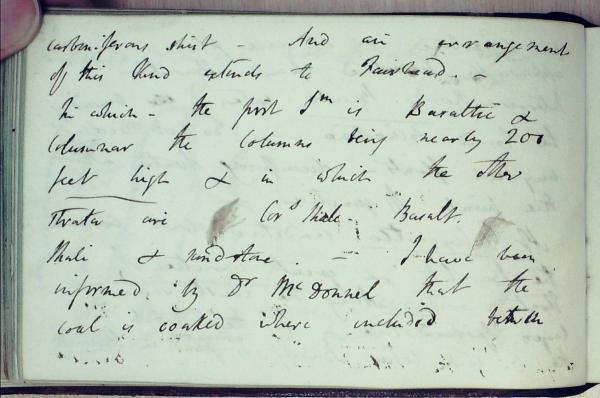 carboniferous shist – And an arrangement
of this kind extends to Fairhead. –
in which – the first Sm is Basaltic &
columnar the columns being nearly 200
feet high & in which the other
strata are Cars Shale – Basalt.
Shale & sandstone. – I have been
informed by Dr McDonnel that the
coal is coaked where included between